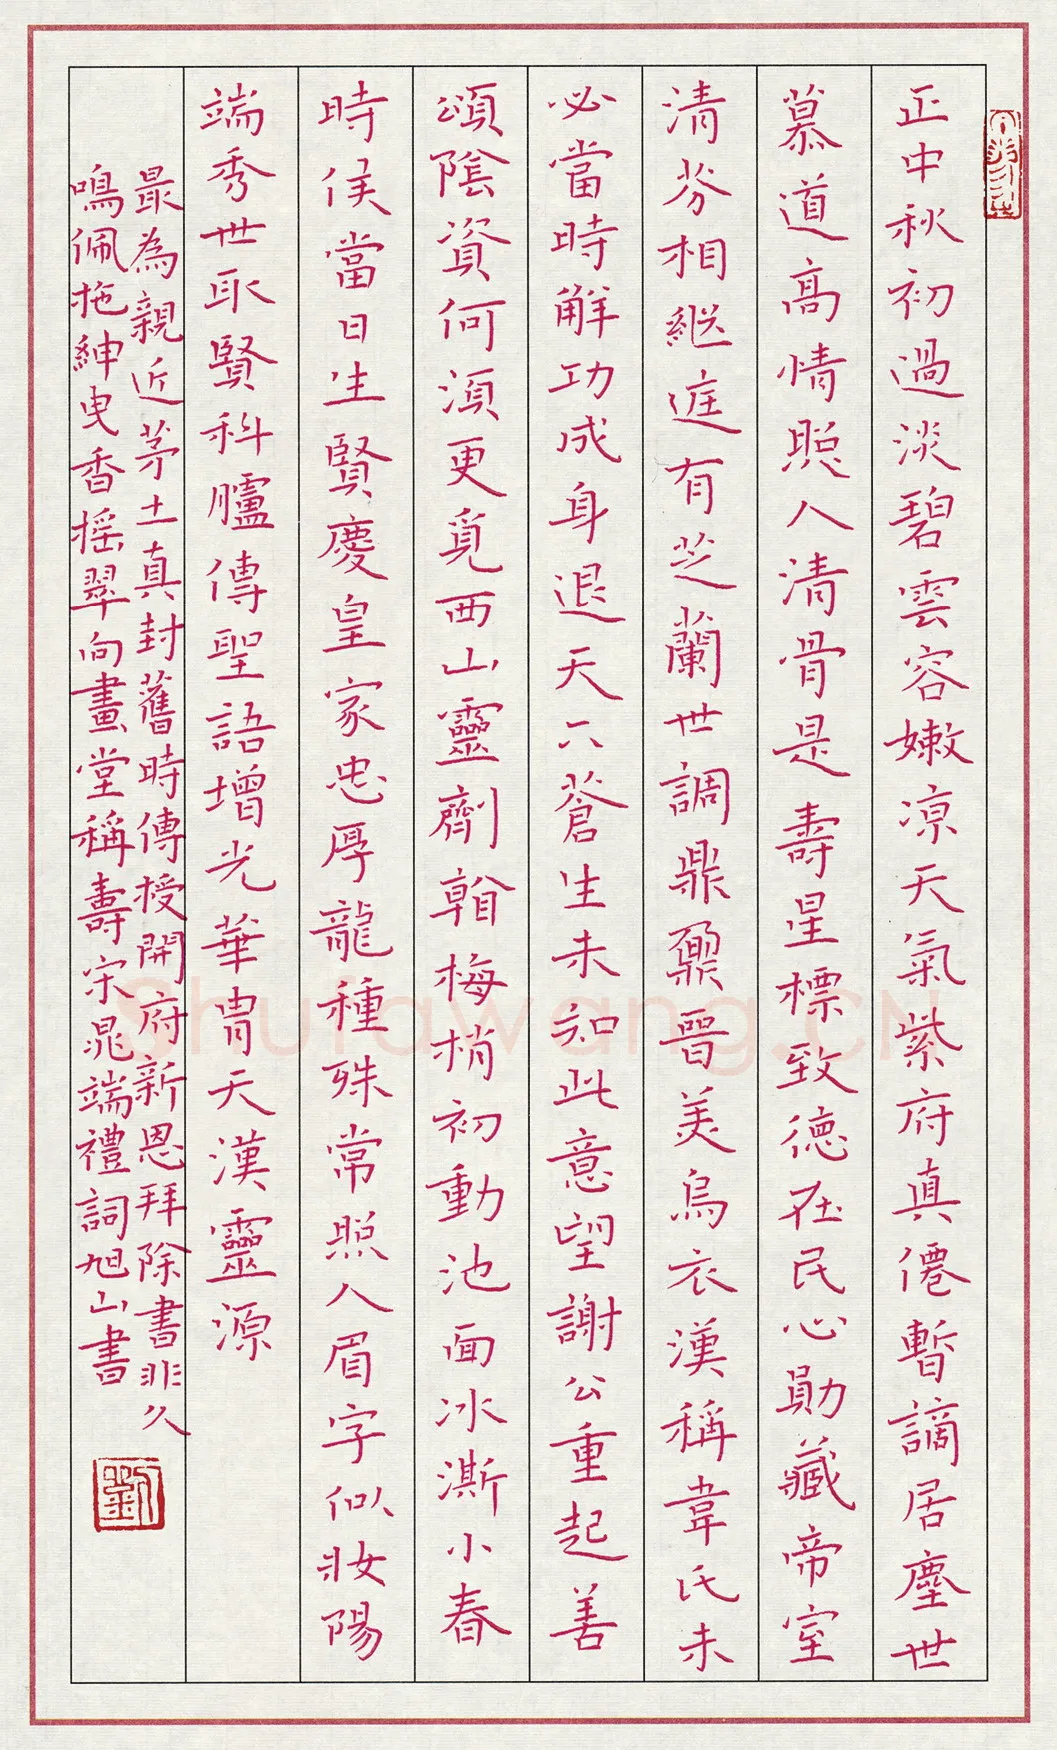 正中秋初過淡碧雲容嫩凉天氣紫府真僊暫謫居塵世
慕道高情照人清骨是壽星標致德在民心勛藏帝室
清芬相繼庭有芝蘭世調鼎鼐晉美烏衣漢稱韋氏未
必當時解功成身退天下蒼生未知此意望謝公重起善
頌陰資何須更覓西山靈劑韓梅梢初動池面冰澌小春
時候當日生賢慶皇家忠厚龍種殊常照人眉宇似妝陽
端秀世取賢科臚傳聖語增光華胄天漢靈源
最為親近茅土真封舊時傳授開府新恩拜除書非久
鳴佩拖紳曳香搖翠向畫堂稱壽宋晁端禮詞旭山書
劉
Shufawang.CN